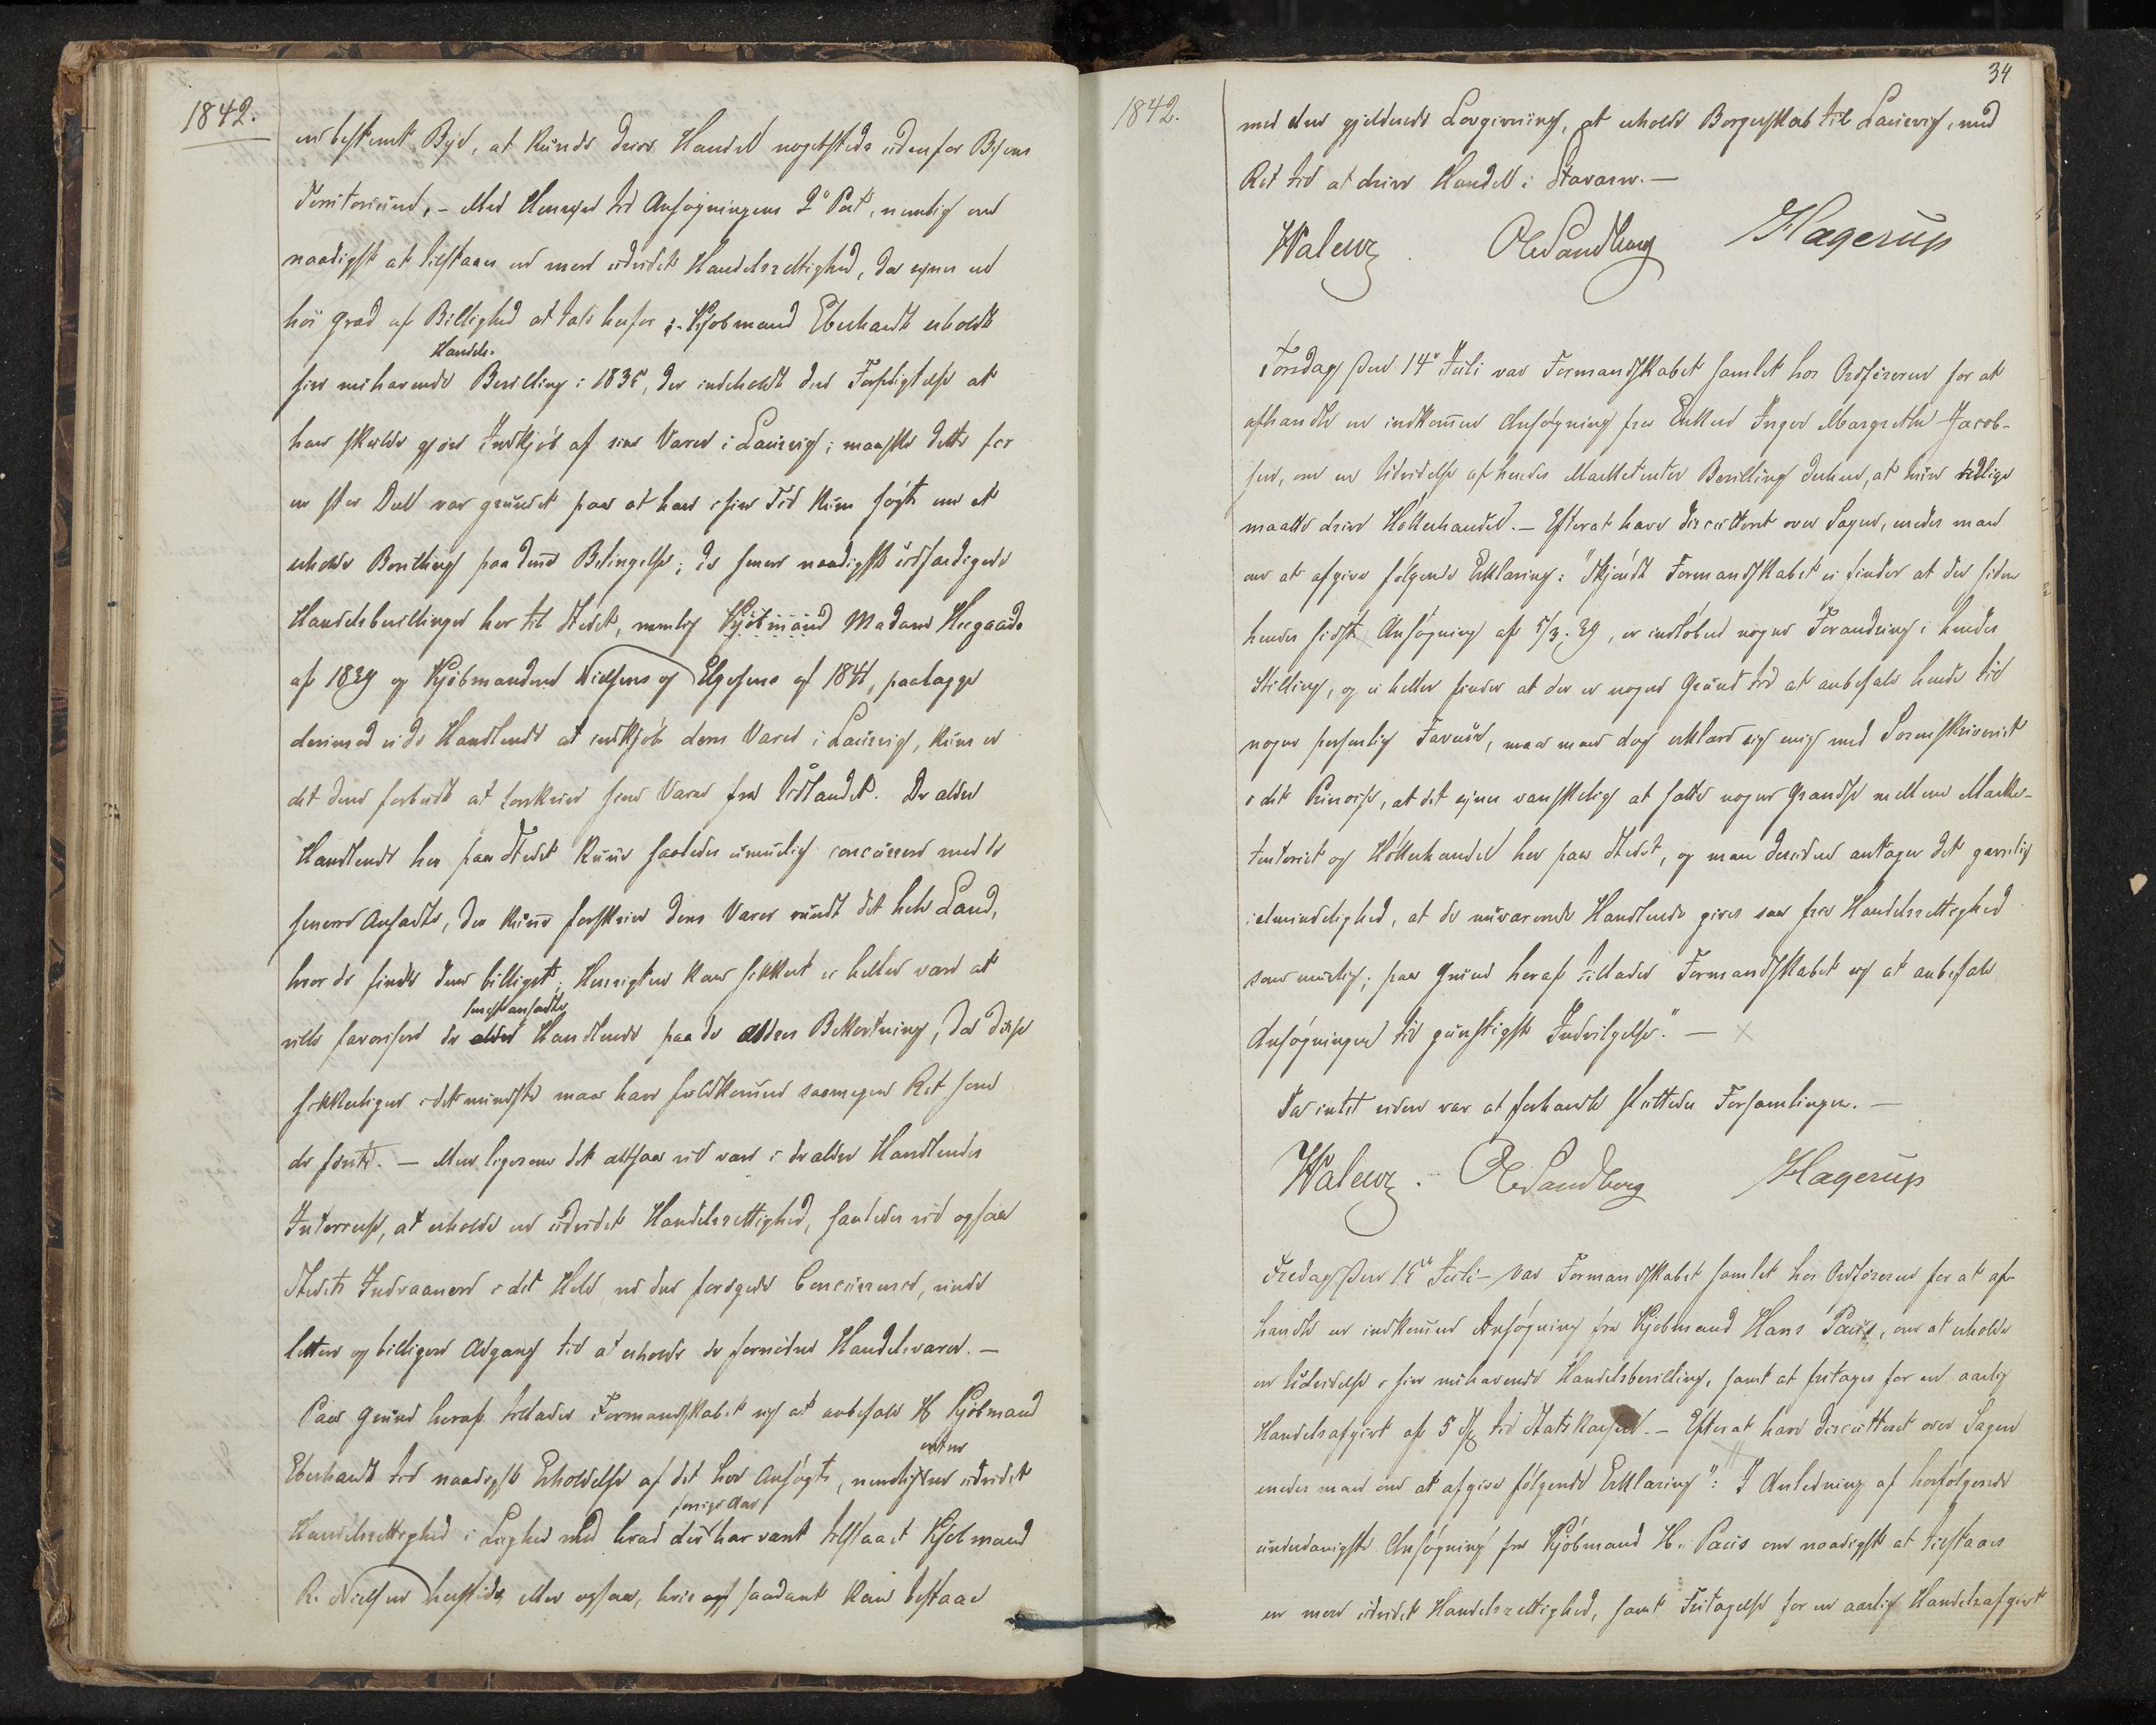 1842.
en bestemt Bye, at kunde drive Handel nogetsteds udenfor Byens
Territorium. – Med Hensyn til Ansøgningens 2° Post, nemlig om
naadigst at tilstaaes en mere udvidet Handelsrettighed, da synes en
høi Grad af Billighed at tale herfor; Kjøbmand Eberhardt erholdt
Handels-
sin nuhavende Bevilling i 1835, der indeholdt den Forpligtelse at
han skulde gjøre Indkjøb af sine Varer i Laurvig; maaskee dette for
en stor Deel var grundet paa at han i sin Tid kun søgte om at
erholde Bevilling paa denne Betingelse; de senere naadigst udfærdigede
Handelsbevillinger her til Stedet, nemlig Kjøbmand Madame Heegaards
af 1839 og Kjøbmændene Nielsens og Elgesens af 1841, paalægge
derimod ei de Handlende at indkjøbe deres Varer i Laurvig, kun er
det dem forbudt at forskrive sine Varer fra Udlandet. De ældre
Handlende her paa Stedet kunne saaledes umulig concurrere med de
senere Ansatte, der kunne forskrive deres Varer rundt det hele Land,
hvor de finde dem billigst; Hensigten kan sikkert ei heller være at
senest ansatte
ville favorisere de ældre Handlende paa de ældres Bekostning, da disse
sikkerligen i det mindste maae have fuldkommen saamegen Ret som
de første. – Men ligesom det altsaa vil være i de ældre Handlendes
Interesse, at erholde en udvidet Handelsrettighed, saaledes vil ogsaa
Stedets Indvaanere i det Hele, ved den forøgede Concurrence, vinde
lettere og billigere Adgang til at erholde de fornødne Handelsvarer. –
Paa Grund heraf tillader Formandskabet sig at anbefale H Kjøbmand
Eberhardt til naadigst Erholdelse af det her Ansøgte, nemlig en udvidet
forrige Aar
Handelsrettighed i Lighed med hvad der har været tilstaaet Kjøbmand
R. Nielsen hersteds, eller ogsaa, hvis saadant kan bestaae
34
1842.
med den gjeldende Lovgivning, at erholde Borgerskab til Laurvig, med
Ret til at drive Handel i Stavern. –
Waleur. O Sandberg Hagerup
Torsdag den 14de Juli var Formandskabet samlet hos Ordføreren for at
afhandle en indkommen Ansøgning fra Enken Inger Margrethe Jacob-
sen, om en Udvidelse af hendes Marketenter Bevilling derhen, at hun tillige
maatte drive Høkerhandel. – Efterat have discutteret over Sagen, enedes man
om at afgive følgende Erklæring: "Skjøndt Formandskabet ei finder at der siden
hendes sidste Ansøgning af 5/3. 39, er indløben nogen Forandring i hendes
Stilling, og ei heller finder at der er nogen Grund til at anbefale hende til
nogen personlig Faveur, maa man dog erklære sig enig med Sorenskriveriet
i det Princip, at det synes vanskeligt at sætte nogen Grændse mellem Marke-
tenteriet og Høkerhandel her paa Stedet, og man desuden antager det gavnlig
i almindelighed, at de nuværende Handlende gives saa frie Handelsrettighed
som mulig; paa Grund heraf tillader Formandskabet sig at anbefale
Ansøgningen til gunstigst Indvilgelse." –
Da intet videre var at forhandle sluttedes Forsamlingen. –
Waleur. O Sandberg Hagerup
Fredag den 15de Juli – var Formandskabet samlet hos Ordføreren for at af-
handle en indkommen Ansøgning fra Kjøbmand Hans Paus, om at erholde
en Udvidelse i sin nuhavende Handelsbevilling, samt at fritages for en aarlig
Handelsafgivt af 5 Spd til Statskassen. – Efterat have discutteret over Sagen
enedes man om at afgive følgende Erklæring": I Anledning af hosfølgende
underdanigste Ansøgning fra Kjøbmand H. Paus om naadigst at tilstaaes
en mere udvidet Handelsrettighed, samt Fritagelse for en aarlig Handelsafgivt